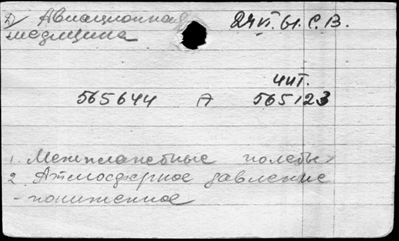 Авиационная
медицина
24 VI. 61. С. В.
чит.
565644 А 565123
1. Межпланетные полеты
2. Атмосферное давление
- пониженное